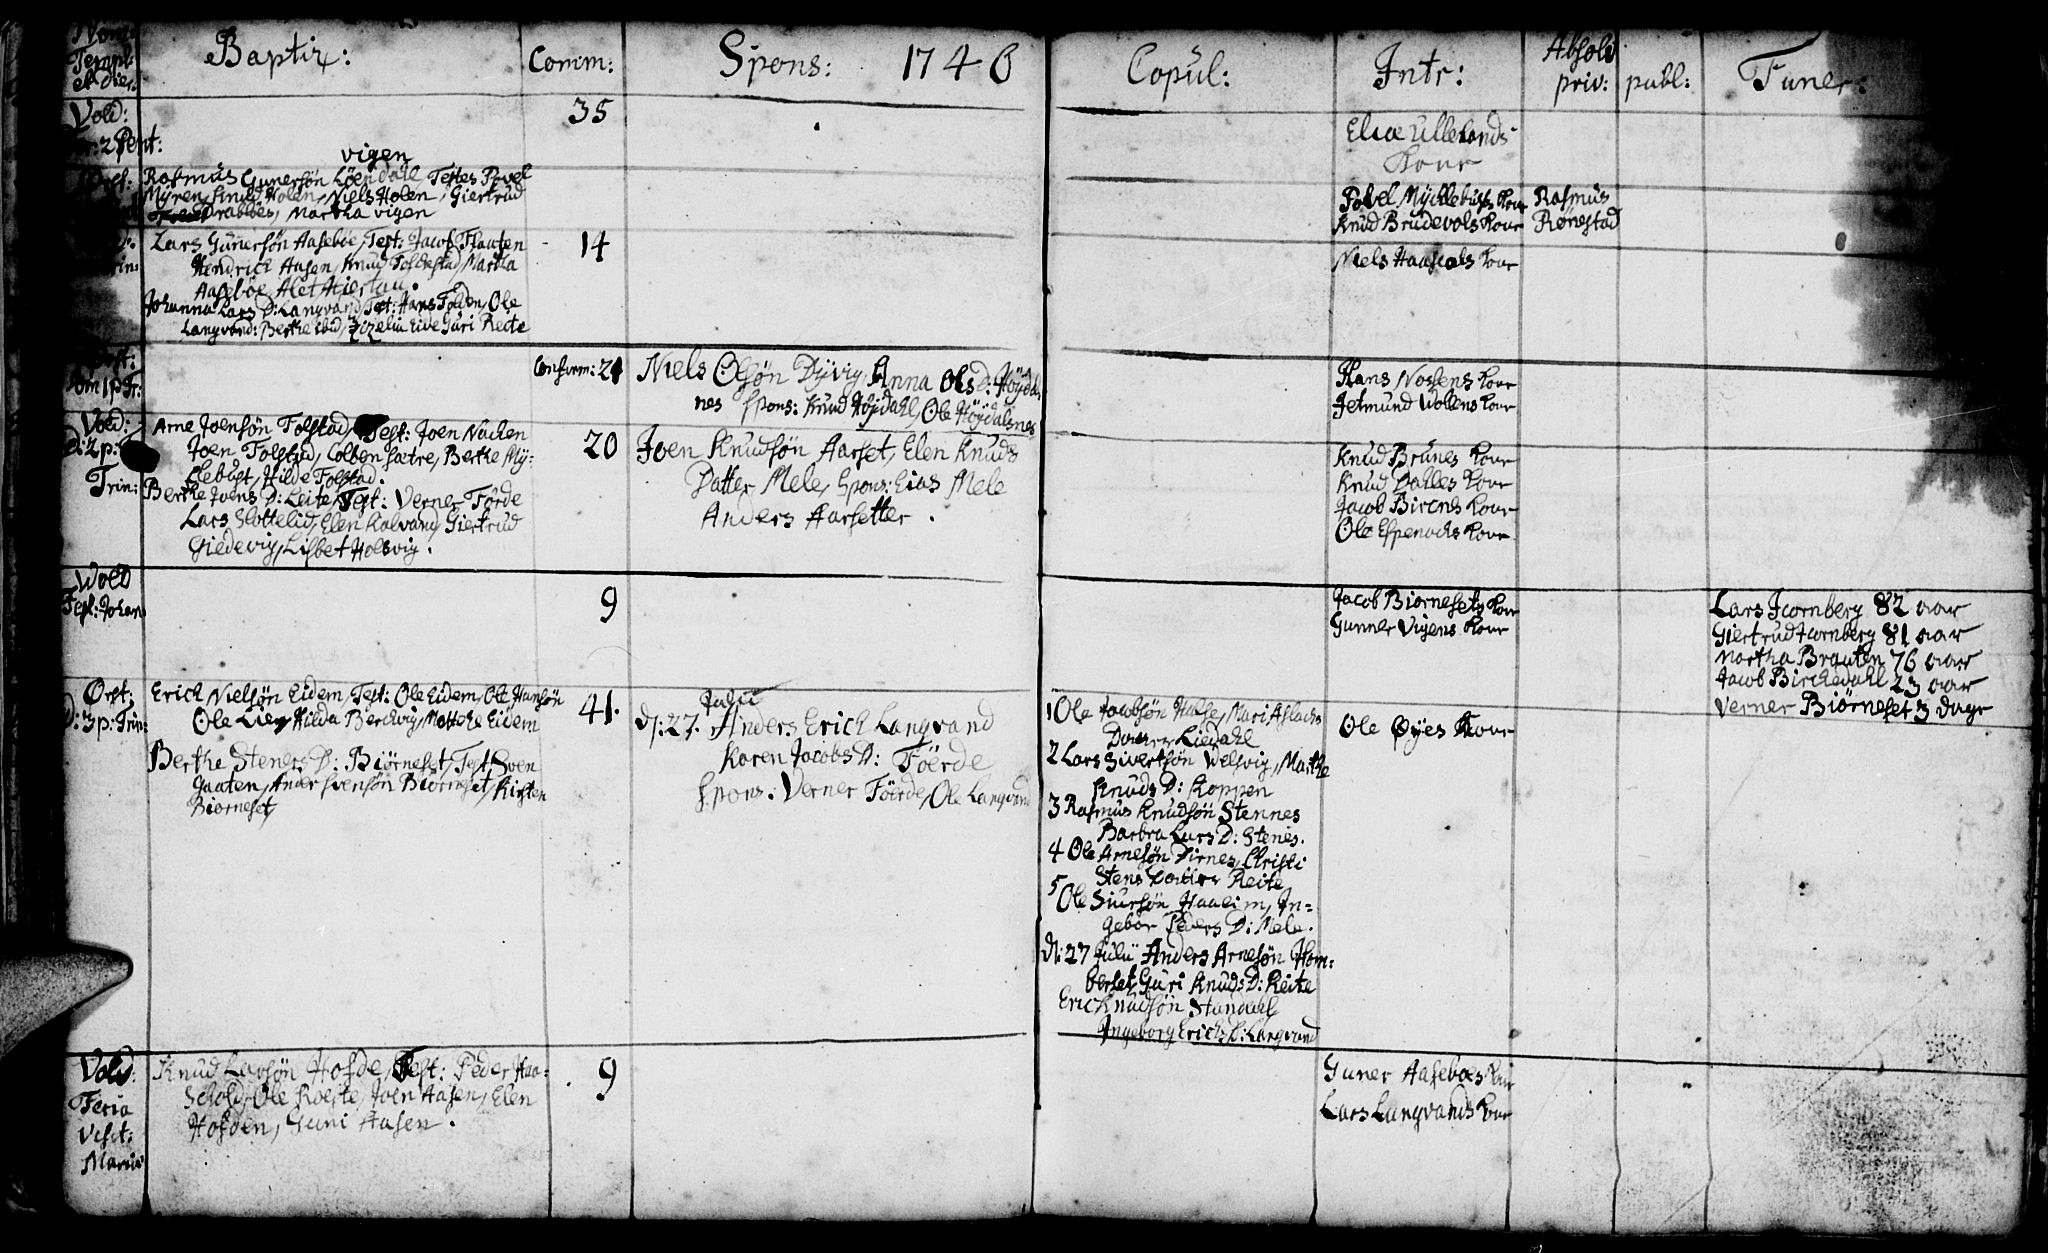 Nom:
Templ:
et dier:
Baptiz:
Comm:
Spons: 1740
Copul:
Intr:
Absolv
priv: publ:
Funer:
Vold:
Fer: 2 Pent:
35
Elias Ullelands
Kone
Ørst:
vigen
Rasmus Gunersøn Löendahl Testes Povel
Myren, Knud Holen, Niels Holen, Giertrud
Drabløs, Martha vigen
Povel Myklebusts Kone
Knud Brudevols Kone
Rasmus
Rønestad
Lars Gunersøn Aasebøe, Test: Jacob Flaaten
Hendrich Aasen, Knud Folkestad, Martha
Aasebøe, Alet Hiertau.
Johanna Lars D: Langvand, Test: Hans Folden, Ole
Langvand: Berthe ibid, Zizelia Eide Guri Reite
14
Niels Haaskols Kone
Ørst:
Dom 1 p Tr:
Confirm: 21
Niels Olsøn Dyvig, Anna Ols D: Höydals
nes Spons: Knud Höjdahl, Ole Höjdalsnes
Hans Noslens Kone
Jetmund Wollens Kone
Vold:
D: 2 p:
Trin:
Arne Joensøn Folstad, Test: Joen Nachen
Joen Folstad, Colben sætre, Berthe My-
clebust, Hilde Folstad.
Berthe Ivens D: Leite, Test: Verner Förde
Lars Slottelid, Elen Kalvand, Giertrud
Giedevig, Lisbet Holsvig.
20
Joen Knudsøn Aarset, Elen Knuds
Datter Mele, Spons: Eias Mele
Anders Aarsetter.
Knud Brunes Kone
Knud Dalles Kone
Jacob Birens Kone
Ole Espenachs Kone
Vold
Fest: Johan:
9
Jacob Biørnesets Kone
Gunner Vigens Kone
Lars Iternberg 82 aar
Giertrud Iternberg 81 aar
Martha Brauten 76 aar
Jacob Birchedahl 23 aar
Verner Biørneset 3 dage
Ørst:
D: 3 p: Trin:
Erich Nielsøn Eidem, Test: Ole Eidem, Ole Hansøn
Ole Lien, Hilda Berchvig, Mattche Eidem
Berthe Steners D: Biørneset, Test: Sven
Gaaten, Ander Svensøn Biørneset, Kirsten
Biørneset
41.
Julii
d: 27. Anders Erich Langvand
Karen Jacobs D: Föerde
Spons: Verner Föerde, Ole Langvand
1 Ole Jacobsøn Halse, Mari Aslachs
Datter Liedahl
2 Lars Sivertsøn Welsvig, Marthe
Knuds D: Koppen
3 Rasmus Knudsøn Stennes
Barbra Lars D: Stenes.
4 Ole Arnesøn Dirnes, Christi
Stens Datter Reite
5 Ole Siursøn Haaeim, In-
gebor Peders D: Mele.
d: 27 Julii Anders Arnesøn Hom:
berset, Guri Knuds D: Reite
Erich Knudsøn Standahl
Ingeborg Erichs D: Langvand
Ole Øyes Kone
Vold:
Feria
Visit:
Mariæ
Knud Larsøn Hofde, Test: Peder Haa-
schold, Ole Roeste, Joen Aasen, Elen
Hofden, Guni Aasen.
9
Guner Aasebøes Kone
Lars Langvands Kone